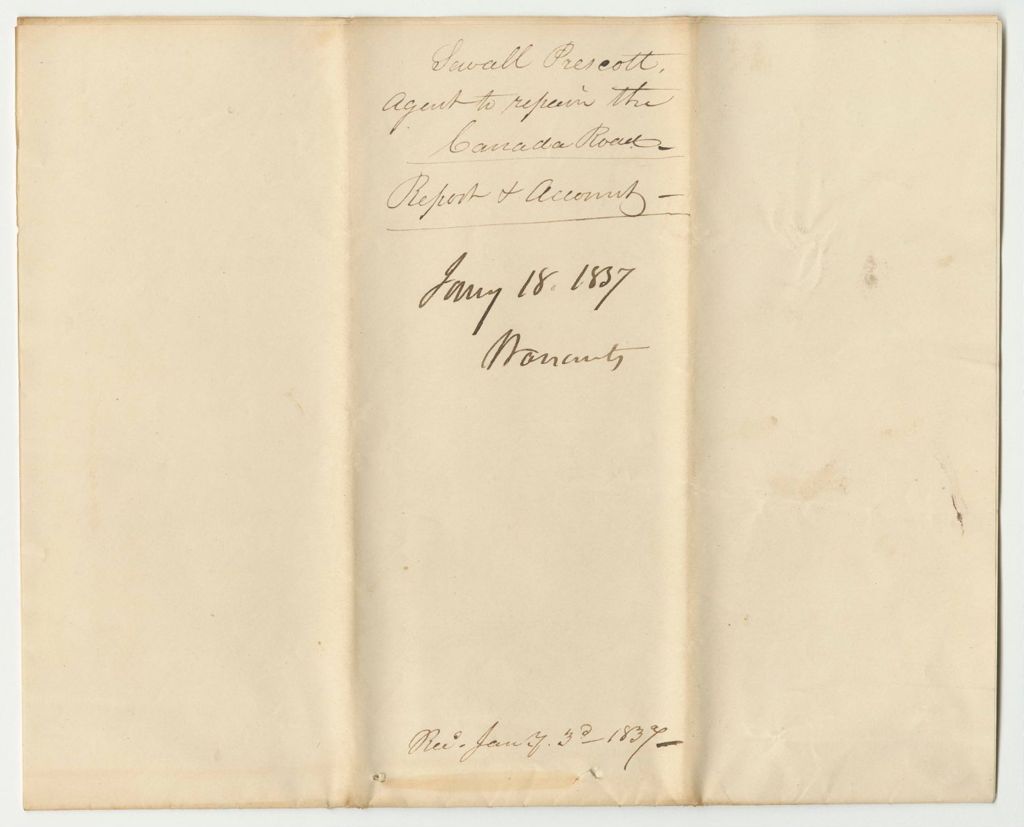 Sewall Prescott,
Agent to repair the
Canada Road
Report & Account
Jany 18. 1837
Warrants
Rec. Jany. 3d 1837